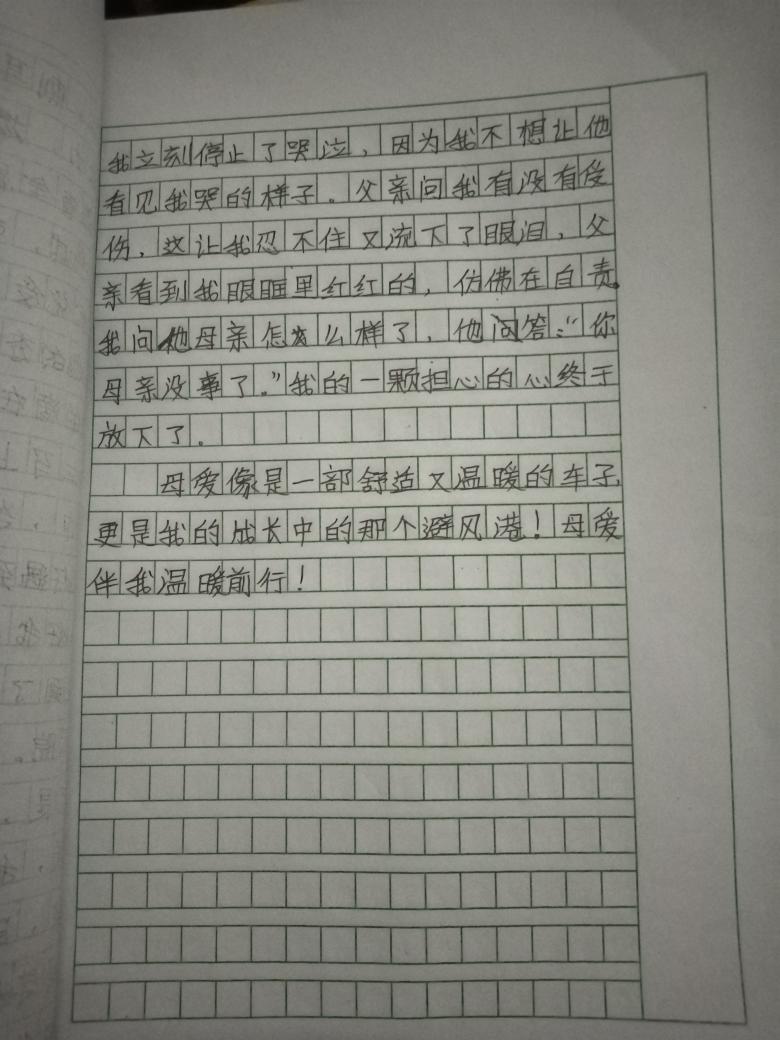 我立刻停止了哭泣，因为我不想让他
看见我哭的样子。父亲问我有没有受
伤，这让我忍不住又流下了眼泪，父
亲看到我眼眶里红红的，仿佛在自责。
我问他母亲怎么样了，他问答：“你
母亲没事了。”我的一颗担心的心终于
放下了。
母爱像是一部舒适又温暖的车子
更是我的成长中的那个避风港！母爱
伴我温暖前行！